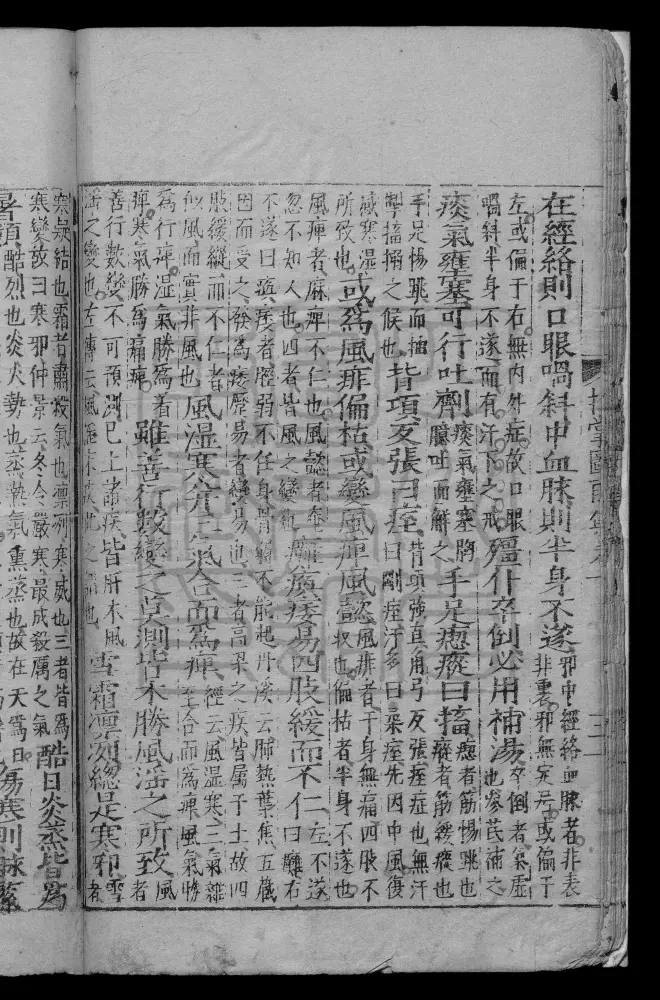 在經絡則口眼喎斜中血脉則半身不遂邪中經絡血脉者非表非裏邪無定居或偏于
左或偏于右無內外症故口眼喎斜半身不遂而有汗下之戒殭仆卒倒必用補湯卒倒者氣虛也參芪補之
痰氣壅塞可行吐劑痰氣壅塞胸臆吐而解之手足瘛瘲曰搐瘛者筋惕跳也瘲者筋緩縱也
手足惕跳而抽掣搐搦之候也背項反張曰痓背項強直角弓反張痓症也無汗曰剛痓汗多曰柔痓先因中風復
感寒濕所致也或爲風痱偏枯或變風痺風懿風痱者于身無痛四肢不收也偏枯者半身不遂也
風痺者麻痺不仁也風懿者奄忽不知人也四者皆風之變瘓痿易四肢緩而不仁左不遂曰癱右
不遂曰瘓痿者脛弱不任身骨不能起丹溪云肺熱葉焦五臟因而受之發爲痿躄易者變易也三者高梁之疾皆屬于土故四
肢緩縱而不仁者似風而實非風也風濕寒并三氣合而爲痺經云風濕寒三氣雜至合而爲痺風氣勝
爲行痺濕氣勝爲着痺寒氣勝爲痛痺雖善行數變之莫測皆木勝風淫之所致風者
善行數變不可預測已上諸疾皆肝木風淫之變也左傳云風淫末疾此之謂也雪霜凛冽總是寒邪雪者
寒凝結也霜者肅殺氣也凛冽寒威也三者皆爲寒變故曰寒邪仲景云冬令嚴寒最成殺厲之氣酷日炎蒸皆爲
暑類酷烈也炎火勢也蒸熱氣熏蒸也故在天爲日